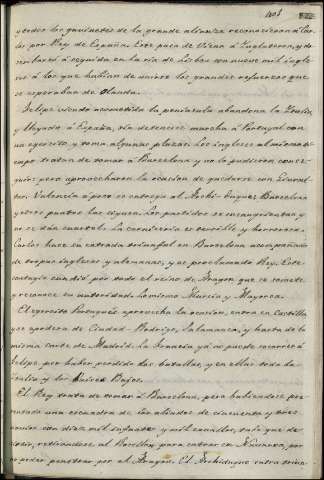 y todos los gavinetes de la grande alianza reconocieron á Car
los por Rey de España. Este pasa de Viena á Inglaterra, y de
sembarcó á seguida en la ría de Lisboa con nueve mil ingle
ses á los que habian de unirse los grandes refuerzos que
se esperaban de Olanda.
Felipe viendo acometida la península abandona la Italia,
y llegado á España, sin detenerse marcha á Portugal con
un egercito, y toma algunas plazas. Los ingleses al mismo ti
empo tratan de tomar á Barcelona y no lo pudieron conse
guir: pero aprovecharon la ocasion de quitarnos con Gibral
tar. Valencia á poco se entrega al Archi-Duque; Barcelona
y otros puntos las siguen. Los partidos se ensangrientan y
no se dan cuartel. La carnicería es terrible y horrorosa.
Carlos hace su entrada triunfal en Barcelona acompañado
de tropas inglesas y alemanas, y es proclamado Rey. Este
contagio cundió por todo el reino de Aragon que se somete
y reconoce su autoridad. Lo mismo Murcia y Mayorca.
El egercito Portugués aprovecha la ocasion, entra en Castilla
y se apodera de Ciudad-Rodrigo, Salamanca, y hasta de la
misma corte de Madrid. La Francia yá no puede socorrer á
Felipe, por haber perdido dos batallas, y en ellas toda la
Italia y los Paises Bajos.
El Rey trata de tomar á Barcelona, pero habiendose pre
sentado una escuadra de los aliados de cincuenta y tres
navios con diez mil infantes y mil caballos, tubo que de
sistir, retirandose al Rosellon para entrar en Navarra, por
no poder penetrar por el Aragon. El Archiduque entra